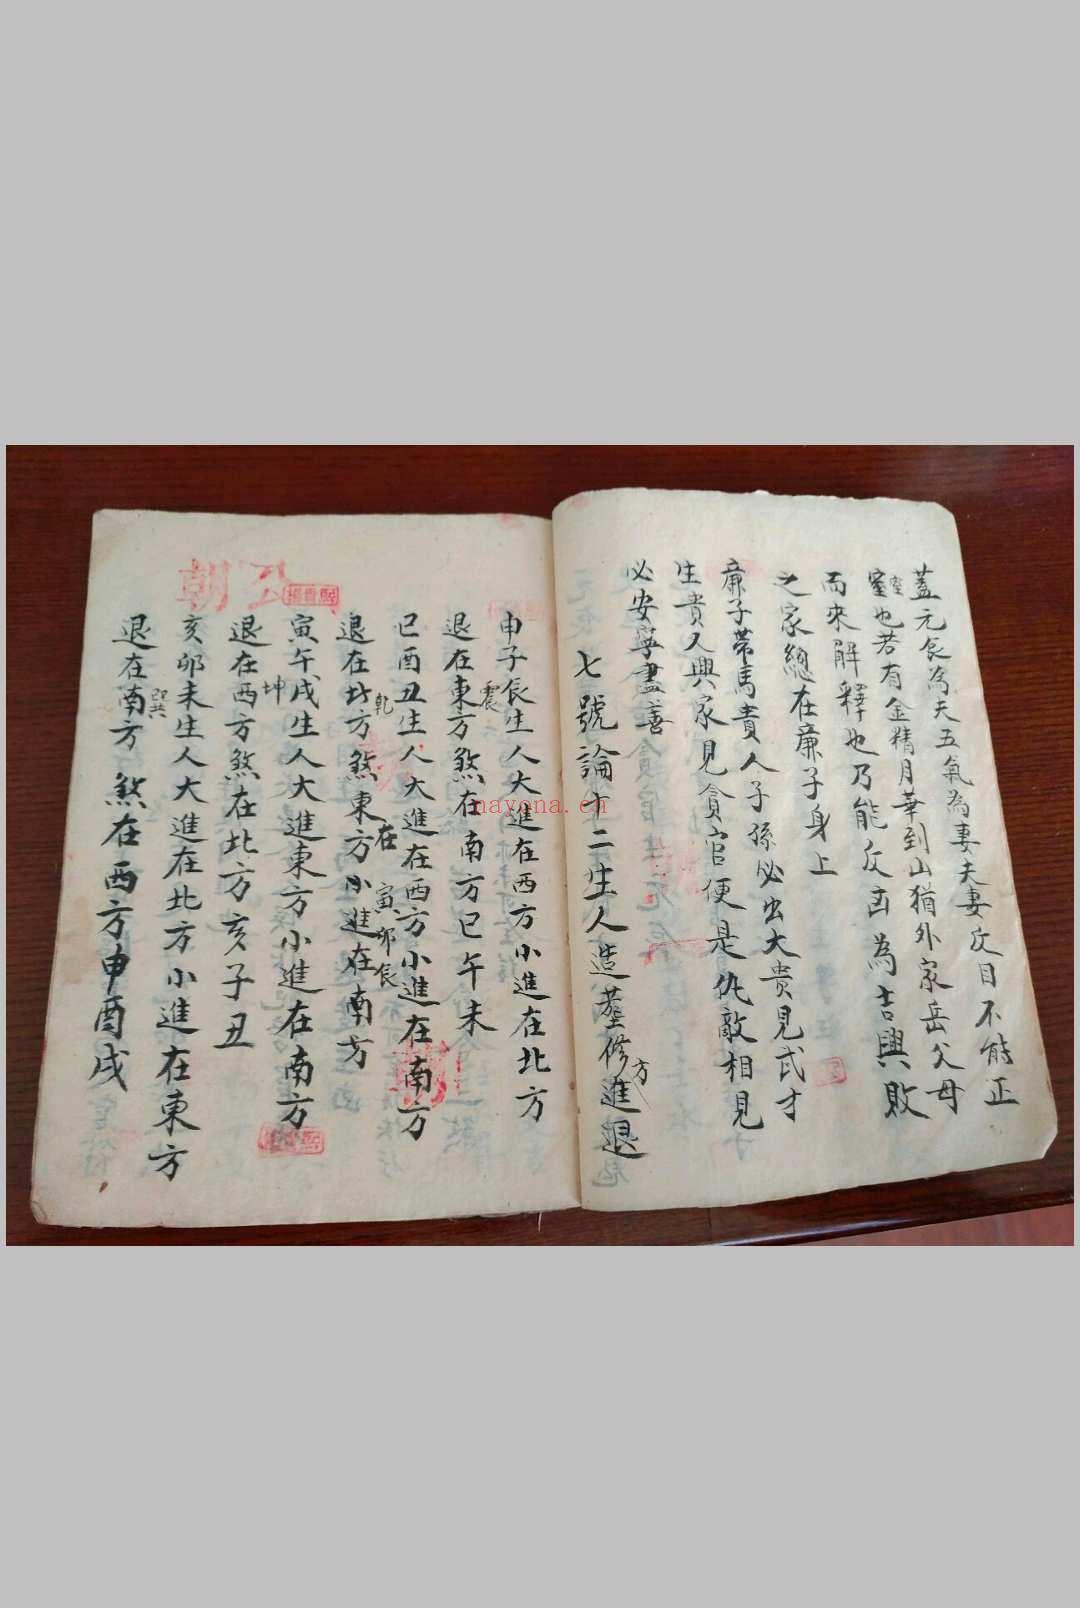 蓋元辰為夫五氣為妻夫妻反目不能正
室也若有金精月華到山猶外家岳父母
室
而來解釋也乃能反凶為吉興敗
之家總在廉子身上
廉子帶馬貴人子孫必出大貴見武才
生貴人興家見貪官便是仇敵相見
必安寧盡善
七號論十二生人造塟修方進退
申子辰生人大進在西方小進在北方
退在東方煞在南方巳午未
震
巳酉丑生人大進在西方小進在南方
退在北方煞在東方小進在南方
乾
寅卯辰
寅午戌生人大進東方小進在南方
退在西方煞在北方亥子丑
坤
亥卯未生人大進在北方小進在東方
退在南方煞在西方申酉戌
巽
公朝
nayona.cn